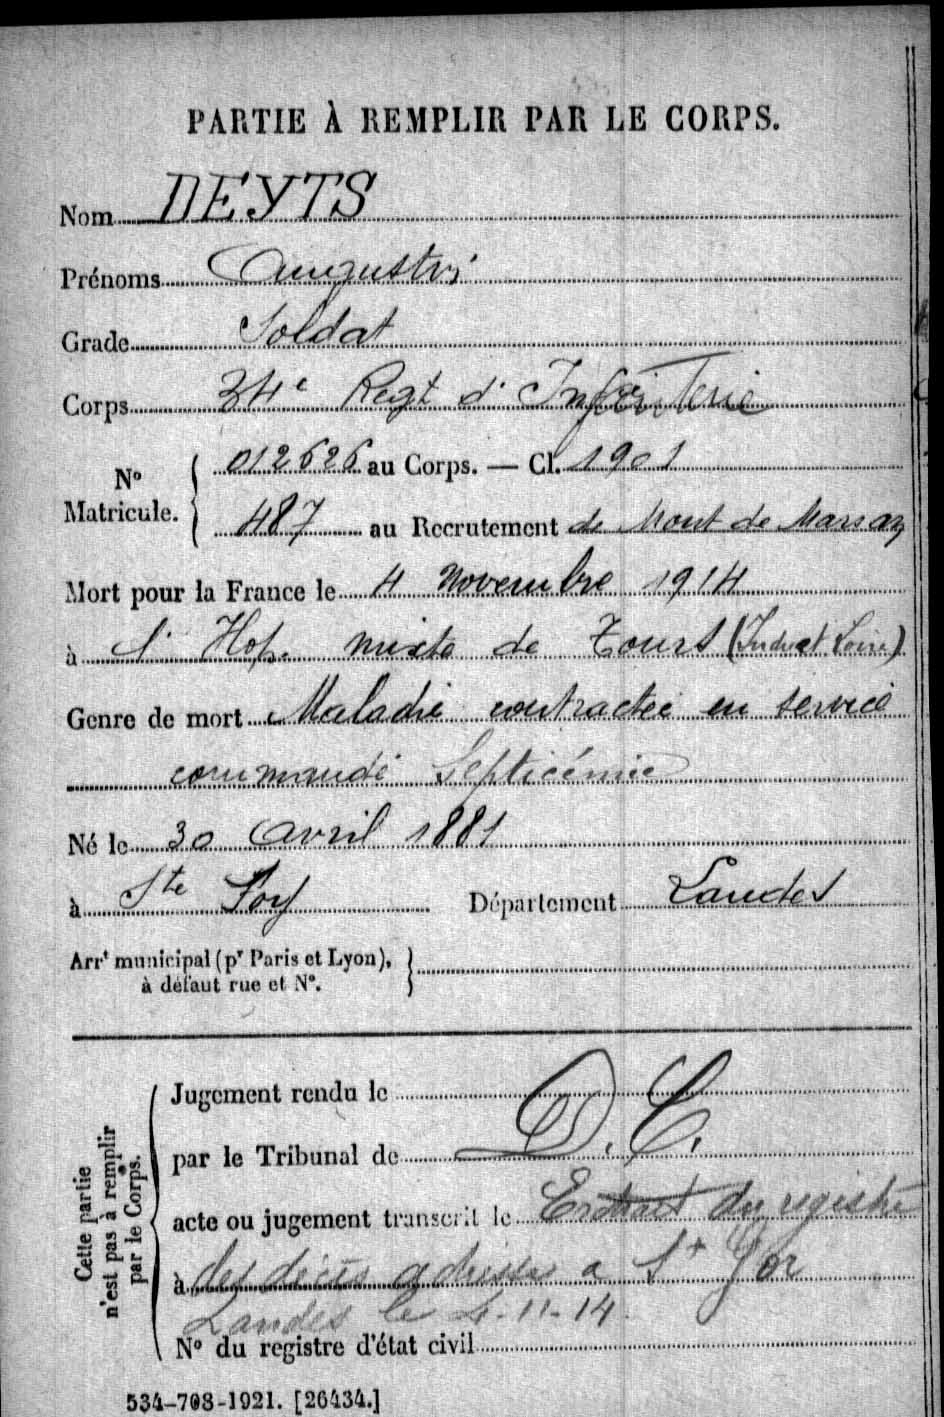 PARTIE À REMPLIR PAR LE CORPS.
Nom DEYTS
Prénoms Augustin
Grade Soldat
Corps 34e Regt d'Infanterie
No Matricule. { 012626 au Corps. — Cl. 1901
487 au Recrutement de Mont de Marsan
Mort pour la France le 4 Novembre 1914
à l'Hop. mixte de Tours (Indre et Loire)
Genre de mort Maladie contractée en service
commandé Septicémie
Né le 30 Avril 1881
à Ste Foy Département Landes
Arrt municipal (pr Paris et Lyon), }
à défaut rue et No.
Cette partie
n'est pas à remplir
par le Corps.
Jugement rendu le
par le Tribunal de D.C.
acte ou jugement transcrit le Extrait du registre
à des décès adressé a St Gor
Landes le 4-11-14.
No du registre d'état civil
534-708-1921. [26434.]